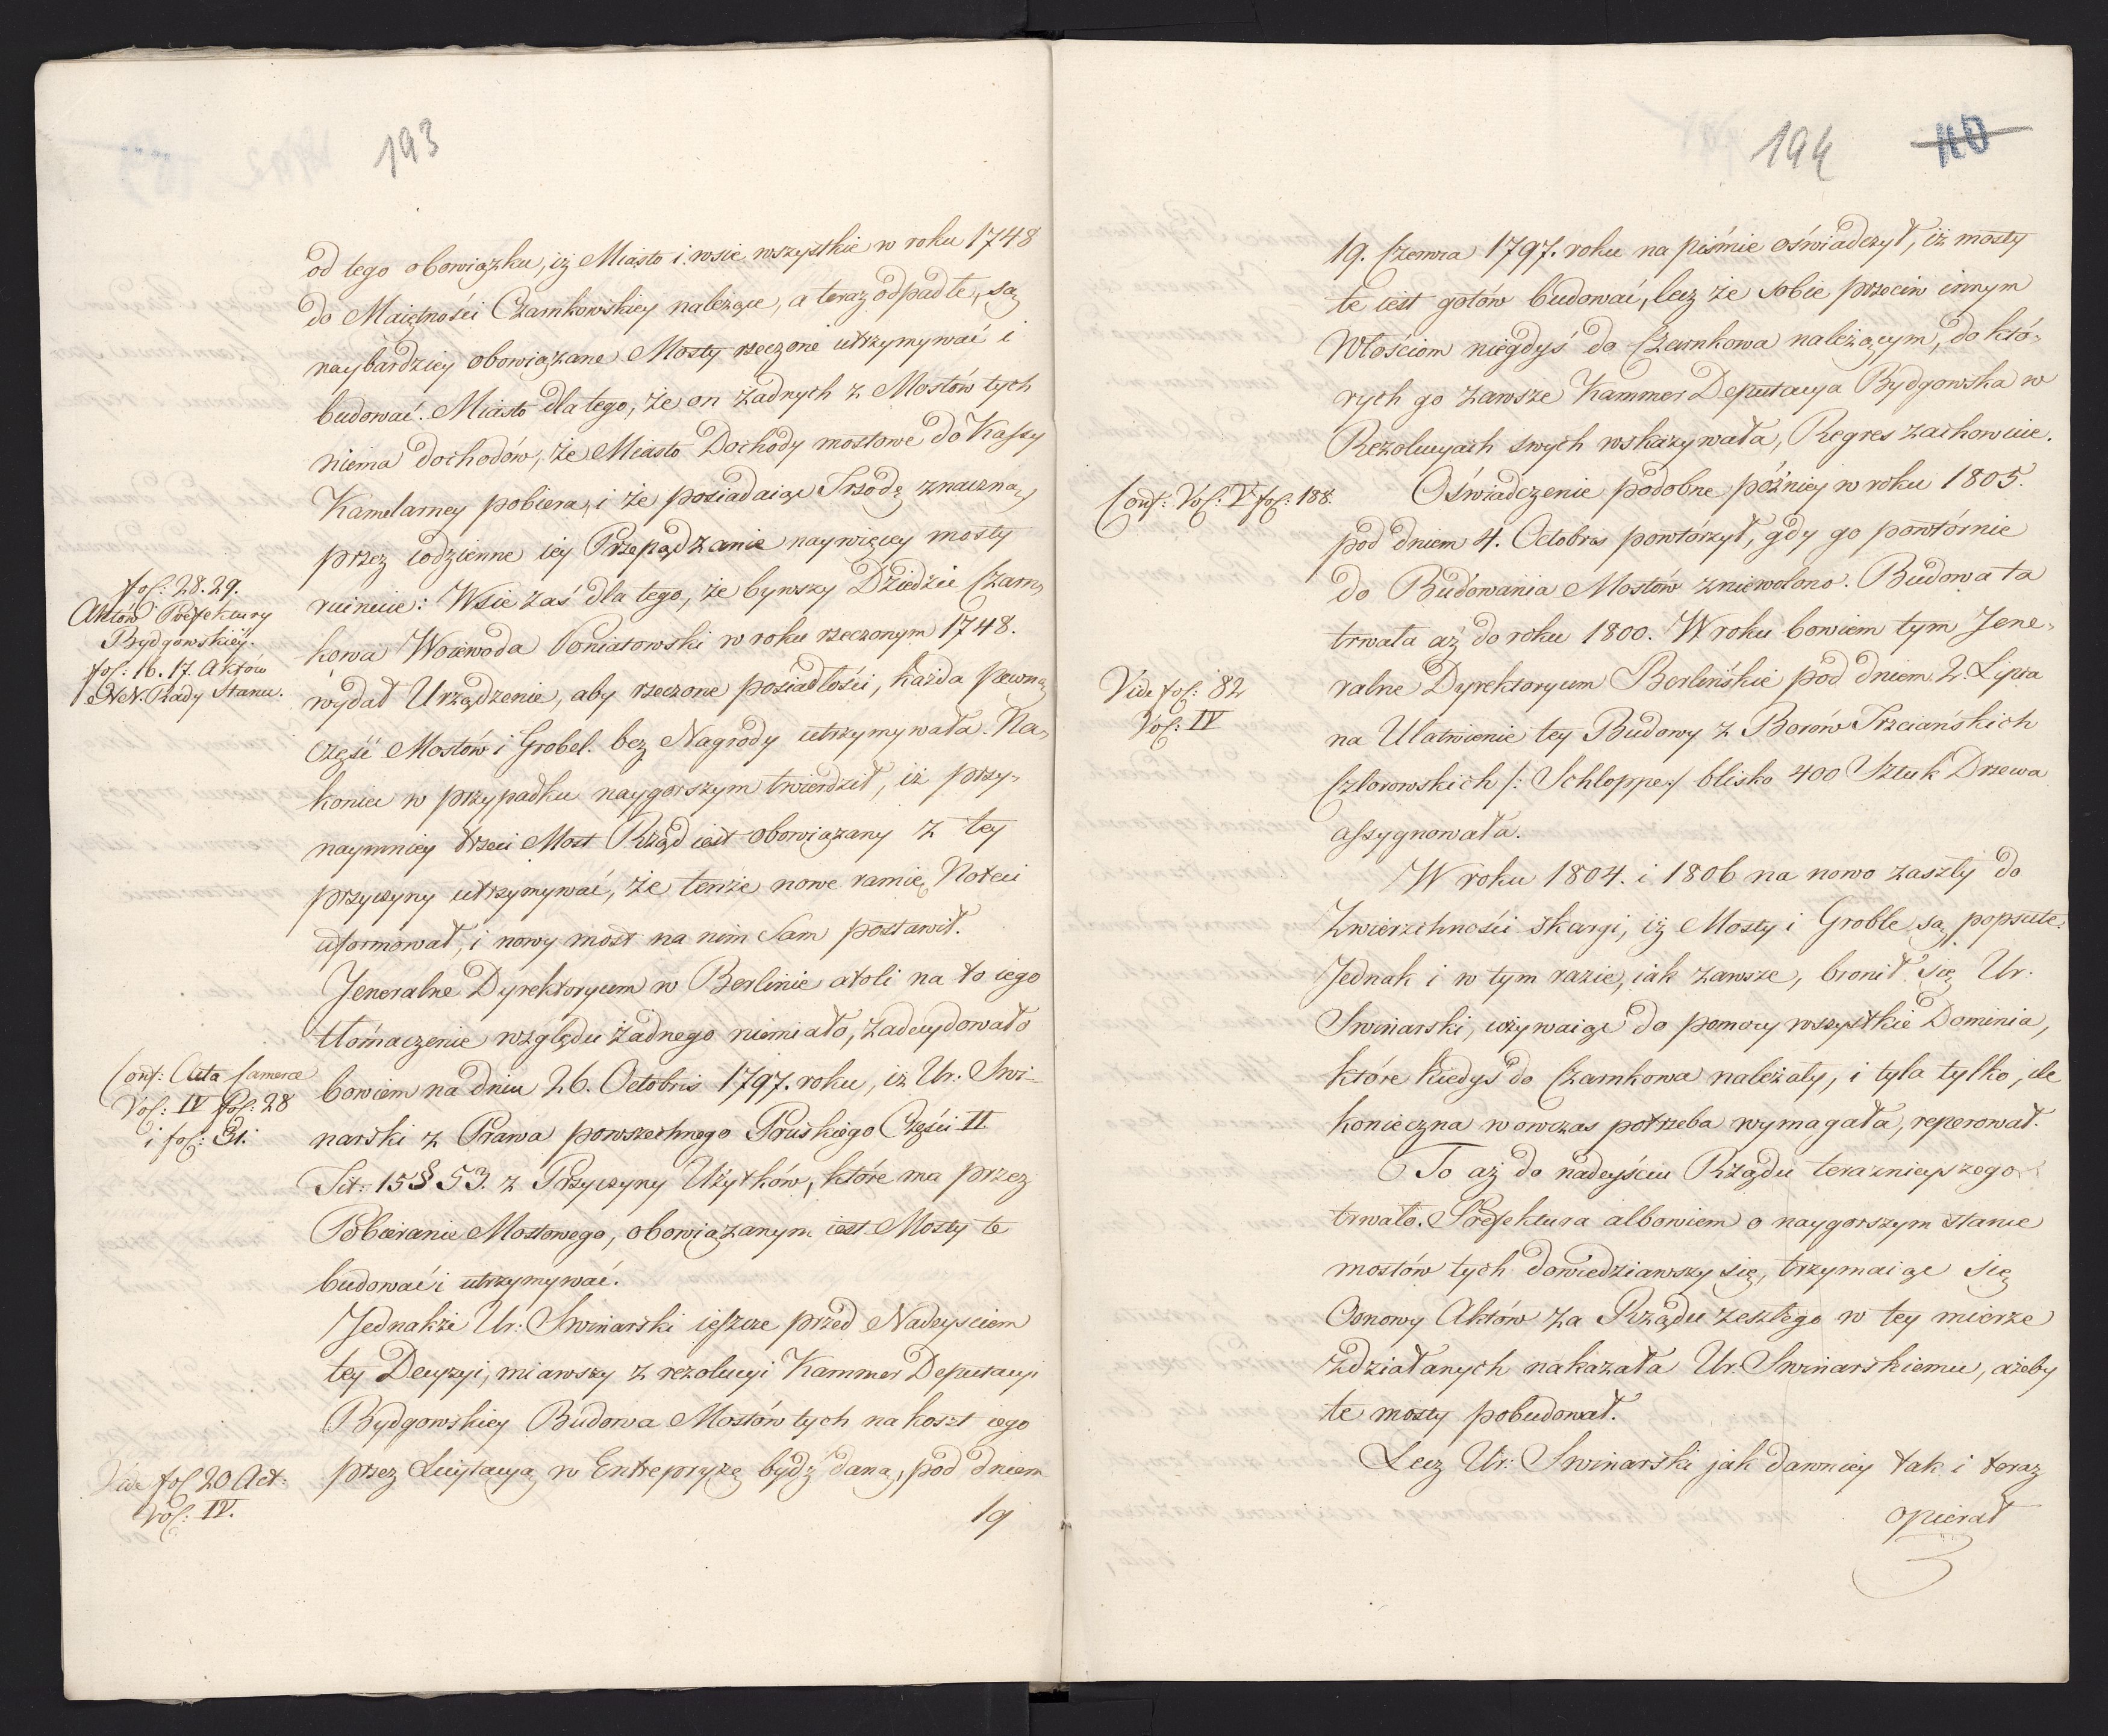 193
od tego obowiązku, iż Miasto i wsie wszystkie w roku 1748
do Maiętności Czarnkowskiey należące, a teraz odpadłe, są
naybardziey obowiązane Mosty rzeczone utrzymywać i
budować. Miasto dla tego, że on żadnych z Mostów tych
niema dochodów, że Miasto Dochody mostowe do Kassy
Kamelarney pobiera, i że posiadaiąc Trzodę znaczną,
przez codzienne iey Przepądzanie naywięcey mosty
fol: 28. 29.
Aktów Prefektury
Bydgowskiey.
fol: 16. 17. Aktów
NN. Rady Stanu.
ruinuie: Wsie zaś dla tego, że bywszy Dziedzic Czarn,
kowa Woiewoda Poniatowski w roku rzeczonym 1748.
wydał Urządzenie, aby rzeczone posiadłości, każda pewną
część Mostów i Grobel. bez Nagrody utrzymywała. Na,
koniec w przypadku naygorszym twierdził, iż przy-
naymniey trzeci Most Rząd iest obowiązany z tey
przyczyny utrzymywać, że tenże nowe ramię Noteci
uformował, i nowy most na nim Sam postawił.
Jeneralne Dyrektoryum w Berlinie atoli na to iego
tłómaczenie względu żadnego niemiało, zadecydowało
Conf: Acta Camerae
Vol: IV fol: 28
i fol: 31.
bowiem na dniu 26. Octobris 1797. roku, iż Ur: Swi-
narski z Prawa powszechnego Pruskiego Części II
Tit: 15 § 53. z Przyczyny Użytków, które ma przez
Pobieranie Mostowego, obowiązanym iest Mosty te
budować i utrzymywać.
Jednakże Ur: Swinarski ieszcze przed Nadeyściem
tey Decyzyi, miawszy z rezolucyi Kammer Deputacyi
Bydgowskiey Budowa Mostów tych na koszt iego
Vide fol 20 Act:
Vol: IV.
przez Licytacyą w Entrepryzę bydź daną, pod dniem
19
194 110
19. Czerwca 1797. roku na piśmie oświadczył, iż mosty
te iest gotów budować, lecz że sobie przeciw innym
Włościom niegdyś do Czarnkowa należącym, do któ,
rych go zawsze Kammer Deputacya Bydgowska w
Rezolucyach swych wskazywała, Regres zachowuie.
Conf: Vol: V fol: 188.
Oświadczenie podobne późniey w roku 1805.
pod dniem 4. Octobris powtórzył, gdy go powtórnie
do Budowania Mostów zniewolono. Budowa ta
trwała aż do roku 1800. W roku bowiem tym Jene,
Vide fol: 82
Vol: IV
ralne Dyrektoryum Berlińskie pod dniem 2. Lipca
na Ułatwienie tey Budowy z Borów Trzciańskich
Człorowskich /: Schloppe :/ blisko 400 Sztuk Drzewa
assygnowała.
W roku 1804. i 1806 na nowo zaszły do
Zwierzchności skargi, iż Mosty i Groble są popsute.
Jednak i w tym razie, iak zawsze, bronił się Ur:
Swinarski, używaiąc do pomocy wszystkie Dominia,
które kiedyś do Czarnkowa należały, i tyla tylko, ile
konieczna wowczas potrzeba wymagała, reperował.
To aż do nadeyściu Rządu teraznieyszego
trwało. Prefektura albowiem o naygorszym stanie
mostów tych dowiedziawszy się, trzymaiąc się
Osnowy Aktów za Rządu zeszłego w tey mierze
zdziałanych nakazała Ur. Swinarskiemu, ażeby
te mosty pobudował.
Lecz Ur: Swinarski jak dawniey tak i teraz
opierał